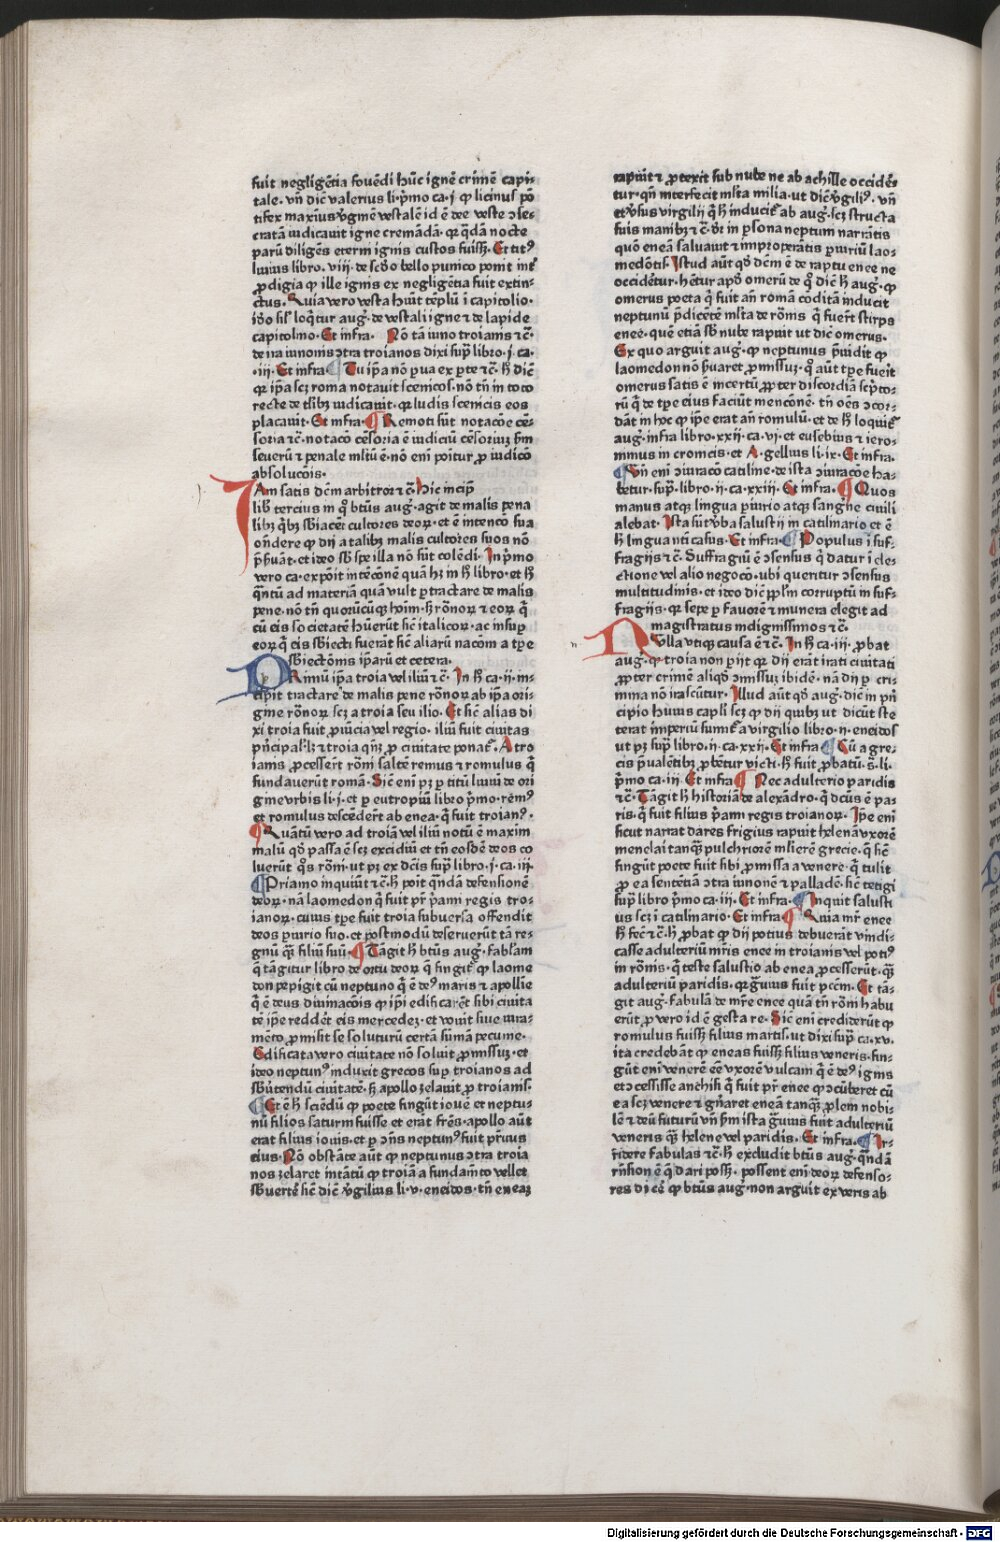 fuit negligẽtia fouẽdi hũc ignẽ crimẽ capi-
tale. vñ dic̃ valerius li. p̃mo ca. j. ꝙ licinus põ
tifex maximꝰ ỽgmẽ vestalẽ id ẽ dee veste ↄse-
cratã iudicauit igne cremãdã. qꝛ q̃dã nocte
parũ diligẽs eterni ignis custos fuiss;. Et titꝰ
liuius libro. viij. de scd̃o bello punico ponit int̃
ꝓdigia ꝙ ille ignis ex negligẽtia fuit extin-
ctus. Quia vero vesta hũit tẽplũ ĩ capitolio.
iõo sil̃ loq̃tur aug̃. de vestali igne ⁊ de lapide
capitolino. Et infra. Nõ tã iuno troianis ⁊c̃.
de ira iunonis ↄtra troianos dixi sup̃ libro. j. ca.
.iij. Et infra ¶ Tu ip̃a nõ ꝑua ex ꝑte ⁊c̃. h̃ dic̃
qꝛ ip̃a scz roma notauit scenicos. nõ tñ in toto
recte de tl̃ibꝫ iudicauit. qꝛ ludis scenicis eos
placauit. Et infra. ¶ Remoti sũt notacõe cẽ-
soria ⁊c̃. notacõ cẽsoria ẽ iudiciũ cẽsoriuꝫ ẜm
seuerũ ⁊ penale mltũ ẽ. nõ em̃ põitur ꝓ iudico
absolucõis.
IAm satis dc̃m arbitror ⁊c̃. Hic incip̃
lib̃ tercius in q̊ bt̃us aug̃. agit de malis pena
libꝫ q̃bꝫ sb̃iacẽt cultores deoꝝ. et ẽ intencõ sua
oñdere ꝙ dij a talibꝫ malis cultores suos nõ
p̃ẜuãt. et ideo sb̃ spe illa nõ sũt colẽdi. In p̃mo
vero ca. expõit intẽcõnẽ quã hꝫ in h̃ libro. et h̃
q̃ntũ ad materiã quã vult ꝑtractare de malis
pene. nõ tñ quorũcũqꝫ hoĩm. ẜ rõnoꝝ ⁊ eoꝝ q̃
cũ eis societatẽ hũerũt sic̃ italicoꝝ. ac insuꝑ
eoꝝ q̃ eis sb̃iecti fuerãt sic̃ aliarũ nacõm a tp̃e
sb̃iectõnis ip̃arũ et cetera.
PRimũ ip̃a troia vel iliũ ⁊c̃. In h̃ ca. ij. in-
cipit tractare de malis pene rõnoꝝ ab ip̃a ori-
gine rõnoꝝ scz a troia seu ilio. Et sic̃ alias di
xi troia fuit ꝓuĩcia vel regio. iliũ fuit ciuitas
pñcipal̃. lꝫ ⁊ troia qñqꝫ ꝓ ciuitate ponat᷑. A tro
ianis ꝓcesserũt rõni saltẽ remus ⁊ romulus q̃
fundauerũt romã. Sic̃ em̃ pꝫ ꝑ titũ liuiũ de ori
gine vrbis li. j. et ꝑ eutropiũ libro p̃mo. remꝰ
et romulus descẽderũt ab enea. q̃ fuit troianꝰ.
¶ Quãtũ vero ad troiã vel iliũ notũ ẽ maxim
malũ qd̃ passa ẽ scz excidiũ et tñ eosdẽ deos co
luerũt q̃s rõni. ut pꝫ ex dc̃is sup̃ libro. j. ca. iij.
¶ Priamo inquiũt ⁊c̃. h̃ põit q̃ndã defensionẽ
deoꝝ. nã laomedon q̃ fuit pr̃ p̃ami regis tro-
ianoꝝ. cuius tp̃e fuit troia subuersa offendit
deos piurio suo. et postmodũ deseruerũt tã re-
gnũ q̃ꝫ filiũ suũ. ¶ Tãgit h̃ bt̃us aug̃. fabl̃am
q̃ tãgitur libro de ortu deoꝝ q̃ fingit᷑ ꝙ laome
don pepigit cũ neptuno q̃ ẽ deꝰ maris ⁊ apollĩe
q̃ ẽ deus diuinacõis ꝙ ip̃i edificarẽt sibi ciuita
tẽ ip̃e reddet̃ eis mercedeꝫ. et vouit siue iura-
mẽto ꝓmisit se soluturũ certã sũmã pecunie.
Edificata vero ciuitate nõ soluit ꝓmissuꝫ. et
ideo neptunꝰ induxit grecos suꝑ troianos ad
sb̃uertẽdũ ciuitatẽ. ẜ apollo zelauit ꝓ troianis.
¶ Et ẽ h̃ sciẽdũ ꝙ poete fingũt iouẽ et neptu-
nũ filios saturni fuisse et erãt fr̃es. apollo aũt
erat filius iouis. et ꝑ ↄñs neptunꝰ fuit pr̃uus
eius. Nõ obstãte aũt ꝙ neptunus ↄtra troia
nos zelaret intãtũ ꝙ troiã a fundamẽto vellet
sb̃uertẽ sic̃ dic̃ v̓gilius li. v. eneidos. tñ eneaꝫ
rapuit ⁊ ꝓtexit sub nube ne ab achille occidẽ-
tur. qñ interfecit ml̃ta milia. ut dic̃ v̓giliꝰ. vñ
et v̓sus virgilij q̃ h̃ inducit᷑ ab aug̃. scz structa
suis manibꝫ ⁊c̃. dr̃ in ꝑsona neptum narrãtis
quõ eneã saluauit ⁊ improperãtis piuriũ lao-
medõtis. Istud aũt qd̃ dc̃m ẽ de raptu enee ne
occidẽtur. hr̃tur apd̃ omerũ de q̊ dic̃ h̃ aug̃. ꝙ
omerus poeta q̃ fuit añ romã cõditã inducit
neptunũ p̃dicẽtẽ ml̃ta de rõnis q̃ fuerũt stirps
enee. quẽ etiã sb̃ nube rapuit ut dic̃ omerus.
Ex quo arguit aug̃. ꝙ neptunus p̃uidit ꝙ
laomedon nõ ẜuaret ꝓmissuꝫ. q̊ aũt tp̃e fuerit
omerus satis ẽ incertũ ꝓpter discordiã sc̃pto-
rũ q̃ de tp̃e eius faciũt mencõnẽ. tñ oẽs ↄcor-
dãt in hoc ꝙ ip̃e erat añ romulũ. et de h̃ loquit᷑
aug̃. infra libro. xxij. ca. vi. et eusebius ⁊ iero-
nimus in cronicis. et A. gellius li. ix. Et infra.
¶ Vñ em̃ ↄiuracõ catiline. de ista ↄiuracõe ha-
betur. sup̃. libro. ij. ca. xxiij. Et infra. ¶ Quos
manus atqꝫ lingua piurio atqꝫ sang̃ne ciuili
alebat. Ista sũt v̓ba salustij in catilinario et ẽ
h̃ lingua nti casus. Et infra. ¶ Populus ĩ suf-
fragijs ⁊c̃. Suffragiũ ẽ ↄsensus q̃ datur ĩ ele-
ctione vel alio negocõ. ubi queritur ↄsensus
multitudinis. et ideo dic̃ pp̃lm corruptũ in suf-
fragijs. qꝛ sepe ꝑ fauorẽ ⁊ munera elegit ad
magistratus indignissimos ⁊c̃.
NVlla vtiqꝫ causa ẽ ⁊c̃. In h̃ ca. iij. ꝓbat
aug̃. ꝙ troia non pijt qꝛ dij erãt irati ciuitati
ꝓpter crimẽ aliqd̃ ↄmissuꝫ ibidẽ. nã dij ꝓ cri-
mina nõ irascũtur. Illud aũt qd̃ aug̃. dic̃ in pñ
cipio huius capl̃i scz ꝙ dij quibꝫ ut dicũt ste
terat imperiũ sumit᷑ a virgilio libro. ij. eneidos
ut pꝫ sup̃ libro. ij. ca. xxij. Et infra ¶ Cũ a gre-
cis p̃ualẽtibꝫ ꝓbẽtur victi. h̃ fuit ꝓbatũ. s̃. li.
p̃mo ca. iij. Et infra ¶ Nec adulterio paridis
⁊c̃. Tãgit h̃ historiã de alexãdro. q̃ dc̃us ẽ pa-
ris. q̃ fuit filius p̃ami regis troianoꝝ. Ip̃e em̃
sicut narrat dares frigius rapuit helenã vxorẽ
menelai tanq̃ꝫ pulchriorẽ ml̃ierẽ grecie. q̃ sic̃
fingũt poete fuit sibi ꝓmissa a venere. q̃ tulit
ꝓ ea sentẽtiã ↄtra iunonẽ ⁊ palladẽ. sic̃ tetigi
sup̃ libro p̃mo ca. iij. Et infra. ¶ Inquit salusti
us scz ĩ catilinario. Et infra ¶ Quia mr̃ enee
h̃ fec̃ ⁊c̃. h̃ ꝓbat ꝙ dij potius debuerãt vindi-
casse adulteriũ mr̃is enee in troianis vel potiꝰ
in rõnis. q̃ teste salustio ab enea ꝓcesserũt. q̃ꝫ
adulteriũ paridis. qꝛ g̃uius fuit pccm̃. Et tã-
git aug̃. fabulã de mr̃e enee quã tñ rõni habu
erũt ꝓ vero id ẽ gesta re. Sic̃ em̃ crediderũt ꝙ
romulus fuissꝫ filius martis. ut dixi sup̃ ca. xv.
ita credebãt ꝙ eneas fuissꝫ filius veneris. fin-
gũt em̃ venerẽ eẽ vxorẽ vulcani q̃ ẽ deꝰ ignis
et ↄcessisse anchisi q̃ fuit pr̃ enee ꝙ ↄcũberet cũ
ea scz venere ⁊ gñaret eneã tanq̃ꝫ ꝓlem nobi-
lẽ ⁊ deũ futurũ vñ ẜm ista g̃uius fuit adulteriũ
veneris q̃ꝫ helene vel paridis. Et infra. ¶ Ir-
ridere fabulas ⁊c̃. h̃ excludit bt̃us aug̃. q̃ndã
rñsion ẽ q̃ dari possꝫ. possent em̃ deoꝝ defenso-
res dicẽ ꝙ bt̃us aug̃. non arguit ex veris ab
Digitalisierung gefördert durch die Deutsche Forschungsgemeinschaft - DFG